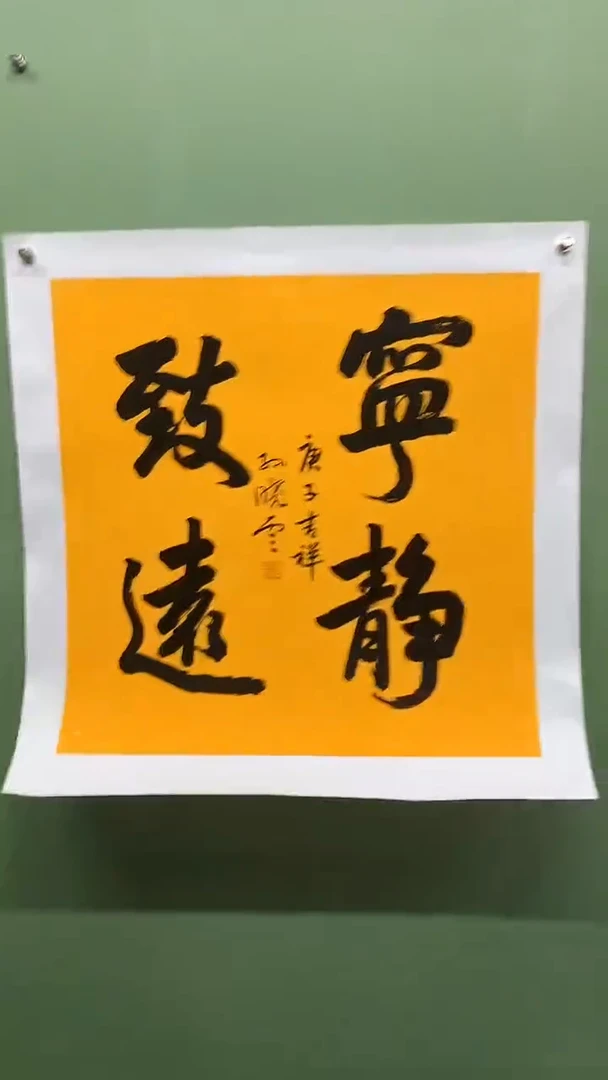 寧靜
致遠
庚子吉祥
孙晓云